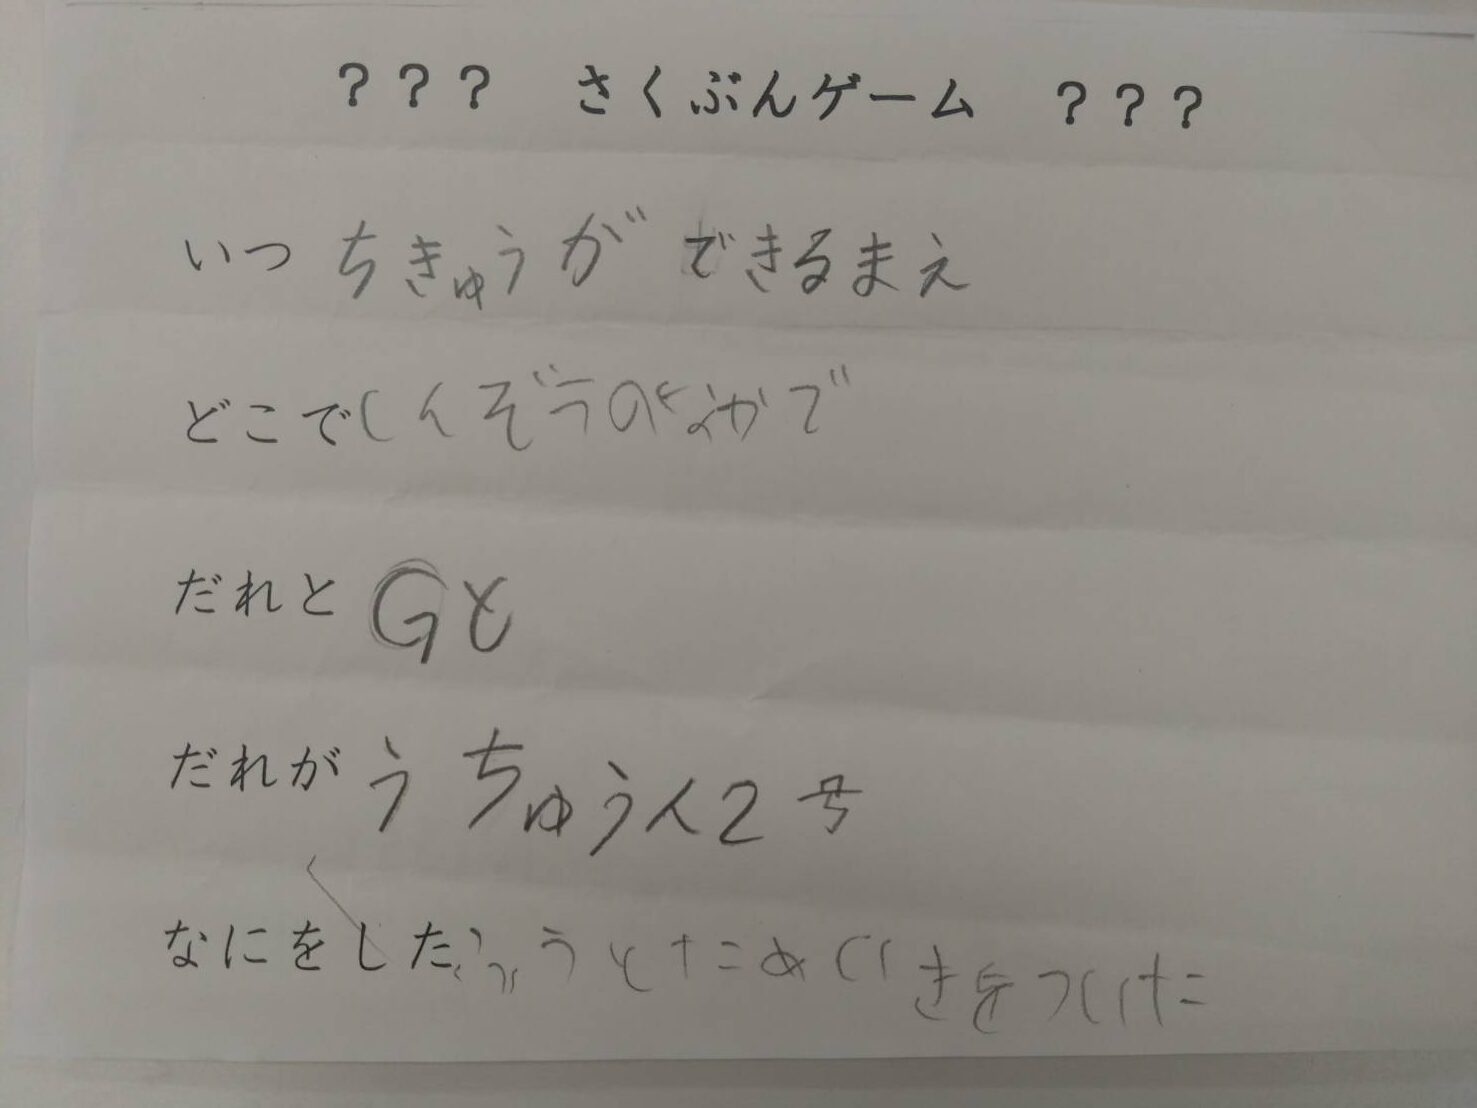 ？？？　さくぶんゲーム　？？？
いつ ちきゅうが できるまえ
どこで しんぞうのなかで
だれと Gと
だれが うちゅう人2号
なにをした ふうとためいきをついた